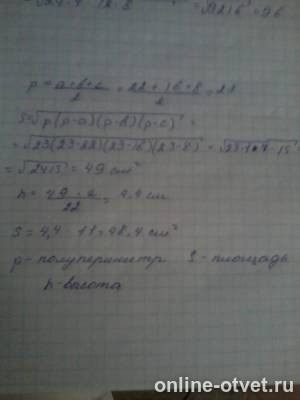 p = a+b+c/2 = 22+16+8/2 = 23
S=√p(p-a)(p-b)(p-c) =
= √23(23-22)(23-16)(23-8) = √23·1·7·15
= √2415 = 49 см²
h = 49·2/22 = 4.4 см
S = 4,4 · 11 = 48.4 см²
p - полупериметр S - площадь
h - высота
online-otvet.ru